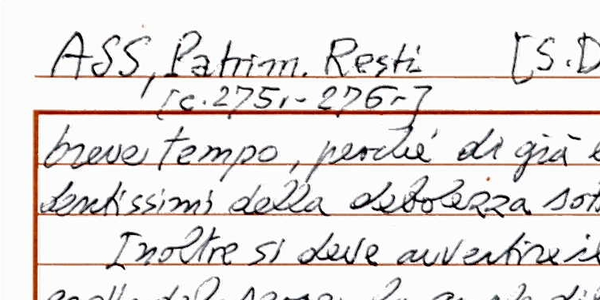 ASS, Patrim. Resti [S.D
[c. 275r - 276r]
breve tempo, perché di già e
dentissimi della debolezza sot
Inoltre si deve avvertire il